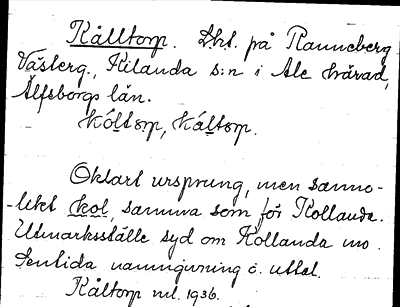 Kålltorp. Lht. på Ranneberg
Västerg., Kilanda s:n i Ale härad,
Älfsborgs län.
Kóltorp, Káltorp.
Oklart ursprung, men sanno-
-likt kol, samma som för Kollanda.
Utmarksställe syd om Kollanda mo.
Sentida namngivning o. uttal.
Kåltorp nul. 1936.